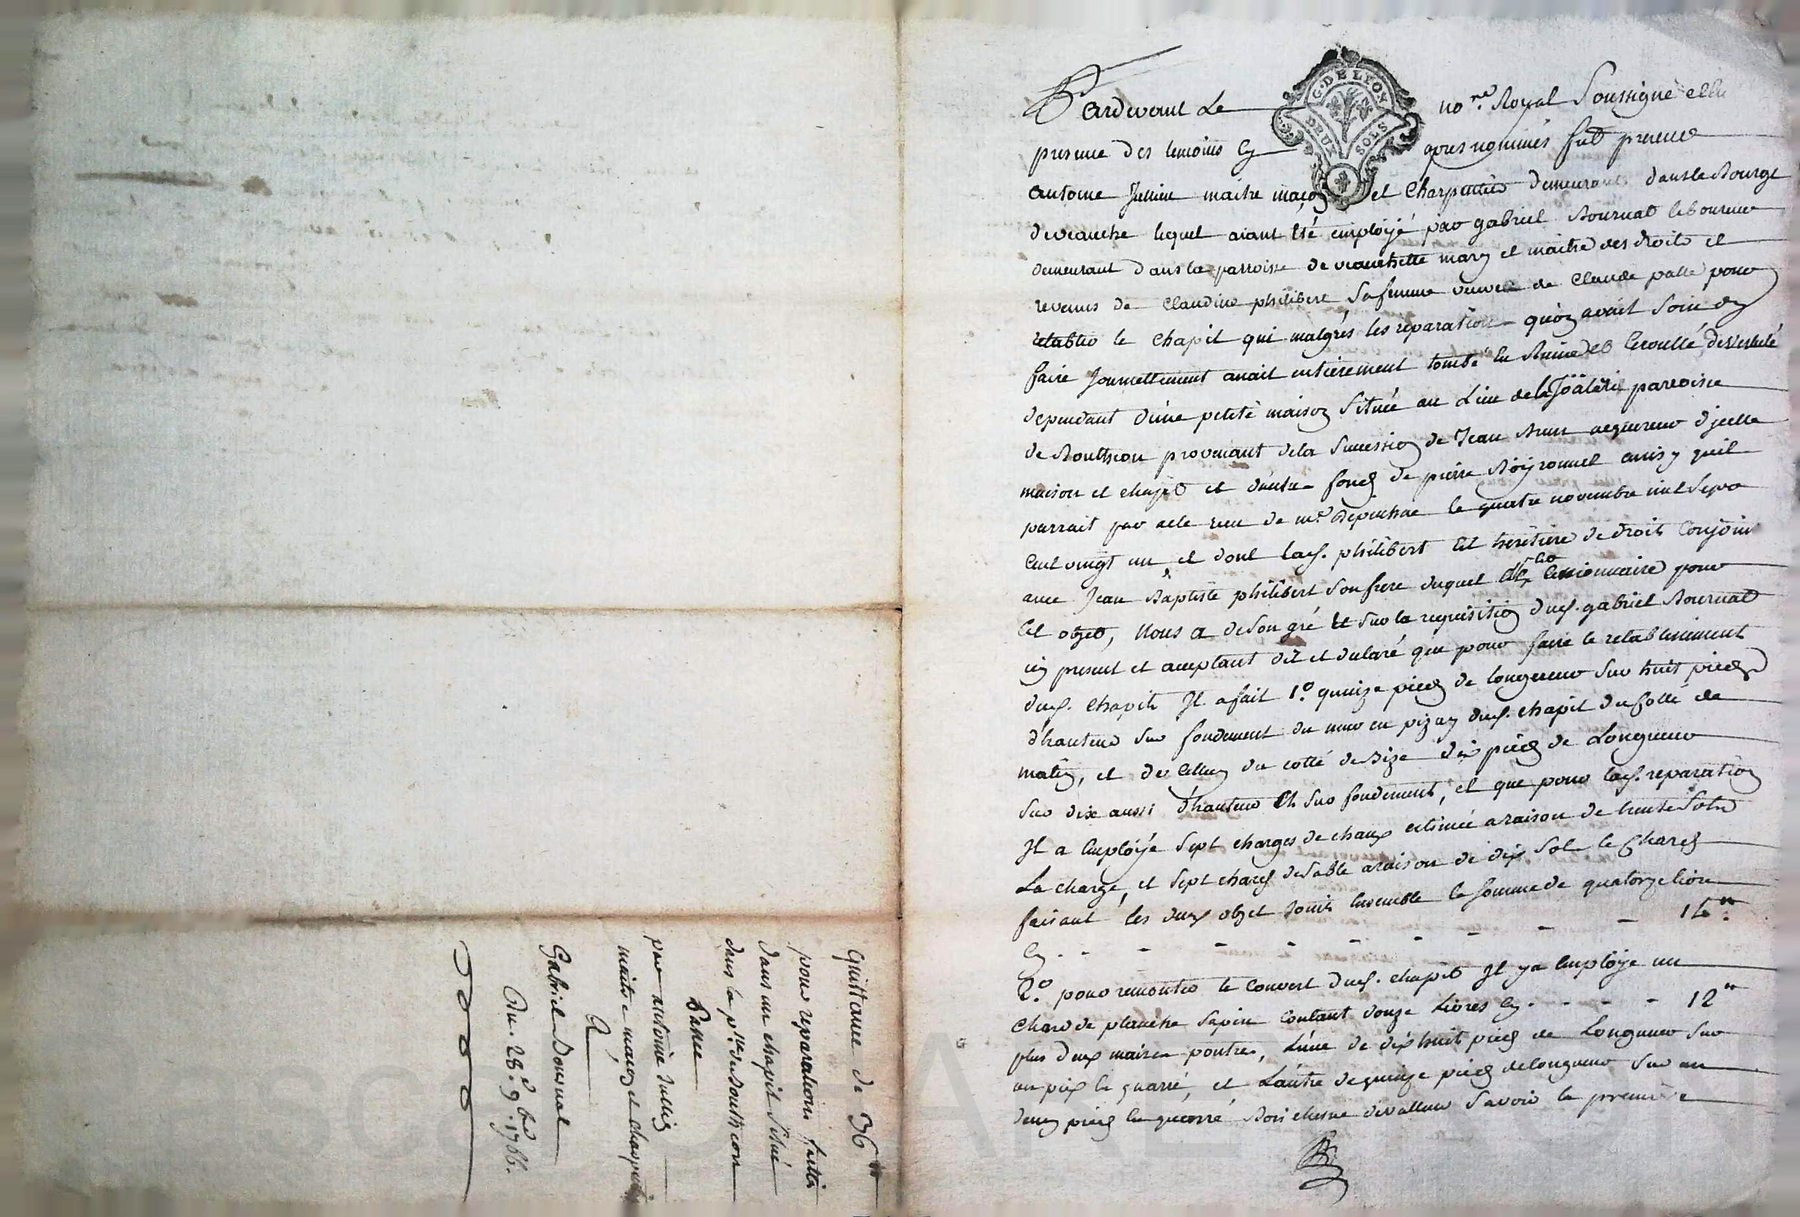 Pardevant Le no.re Royal Soussigné et En
presence des temoins Cy apres nommés fut present
antoine Jullien maitre maçon et Charpentier demeurant dans le Bourg
de veauche lequel aiant été employé par gabriel Bournat laboureur
demeurant dans la parroisse de veauchette mary et maitre des droits et
revenus de Claudine philibert Sa femme veuve de Claude palle pour
retablir le chapit qui malgrés les reparation quon avait Soin de
faire Journellement avait entierement tombé En Ruine et Ecroullé,
dependant d'une petite maison Située au Lieu de la parroisse
de Bouthéon provenant de la Succession de Jean Brun acquereur d'jcelle
maison et chapit et d'autre fonds de pierre ainsy quil
parrait par acte reçu de me. le quatre novembre mil Sept
Cent vingt un et dont lad. philibert Est heritiere de droit Conjoint
avec Jean Baptiste philibert Son frere duquel Cessionnaire pour
Cet objet, Nous a de Son gré Et Sur la requisition dud. gabriel Bournat
icy present et acceptant dit et declaré que pour faire le retablissement
dud. chapit Il a fait 1.o quinze pieds de longueur Sur huit pieds
d'hauteur Sur fondement du mur en pizay dud. chapit du Cotté de
matin, et de Celluy du cotté de Bize dix pieds de Longueur
Sur dix aussi d'hauteur Sur fondement, et que pour lad. reparation
Il a Employé Sept charges de chaux estimée a raison de trente Sols
La charge, et Sept chards de Sable a raison de dix Sol le Chard
faisant les deux objet Joints Ensemble la Somme de quatorze livres
Cy - - - - - - - - - 14.tt
2.o pour remonter le couvert dud. chapit Il y a Employé un
Chard de planche Sapin Coutant douze Livres Cy - - - - 12.tt
plus deux poutres, L'une de dix huit pieds de Longueur Sur
un pied En quarré, et L'autre de quinze pieds de longueur Sur un
deux pieds En quarré Bois chesne devalleur Savoir la premiere
Quittance de 36.tt
pour reparations faittes
dans un chapit Situé
dans la p.sse de Bouthéon
Passée
par antoine Jullien
maitre maçon et charpentier
A
Gabriel Bournat
Du. 28.e 9.bre 1766.
G. DE LYON
DEUX SOLS